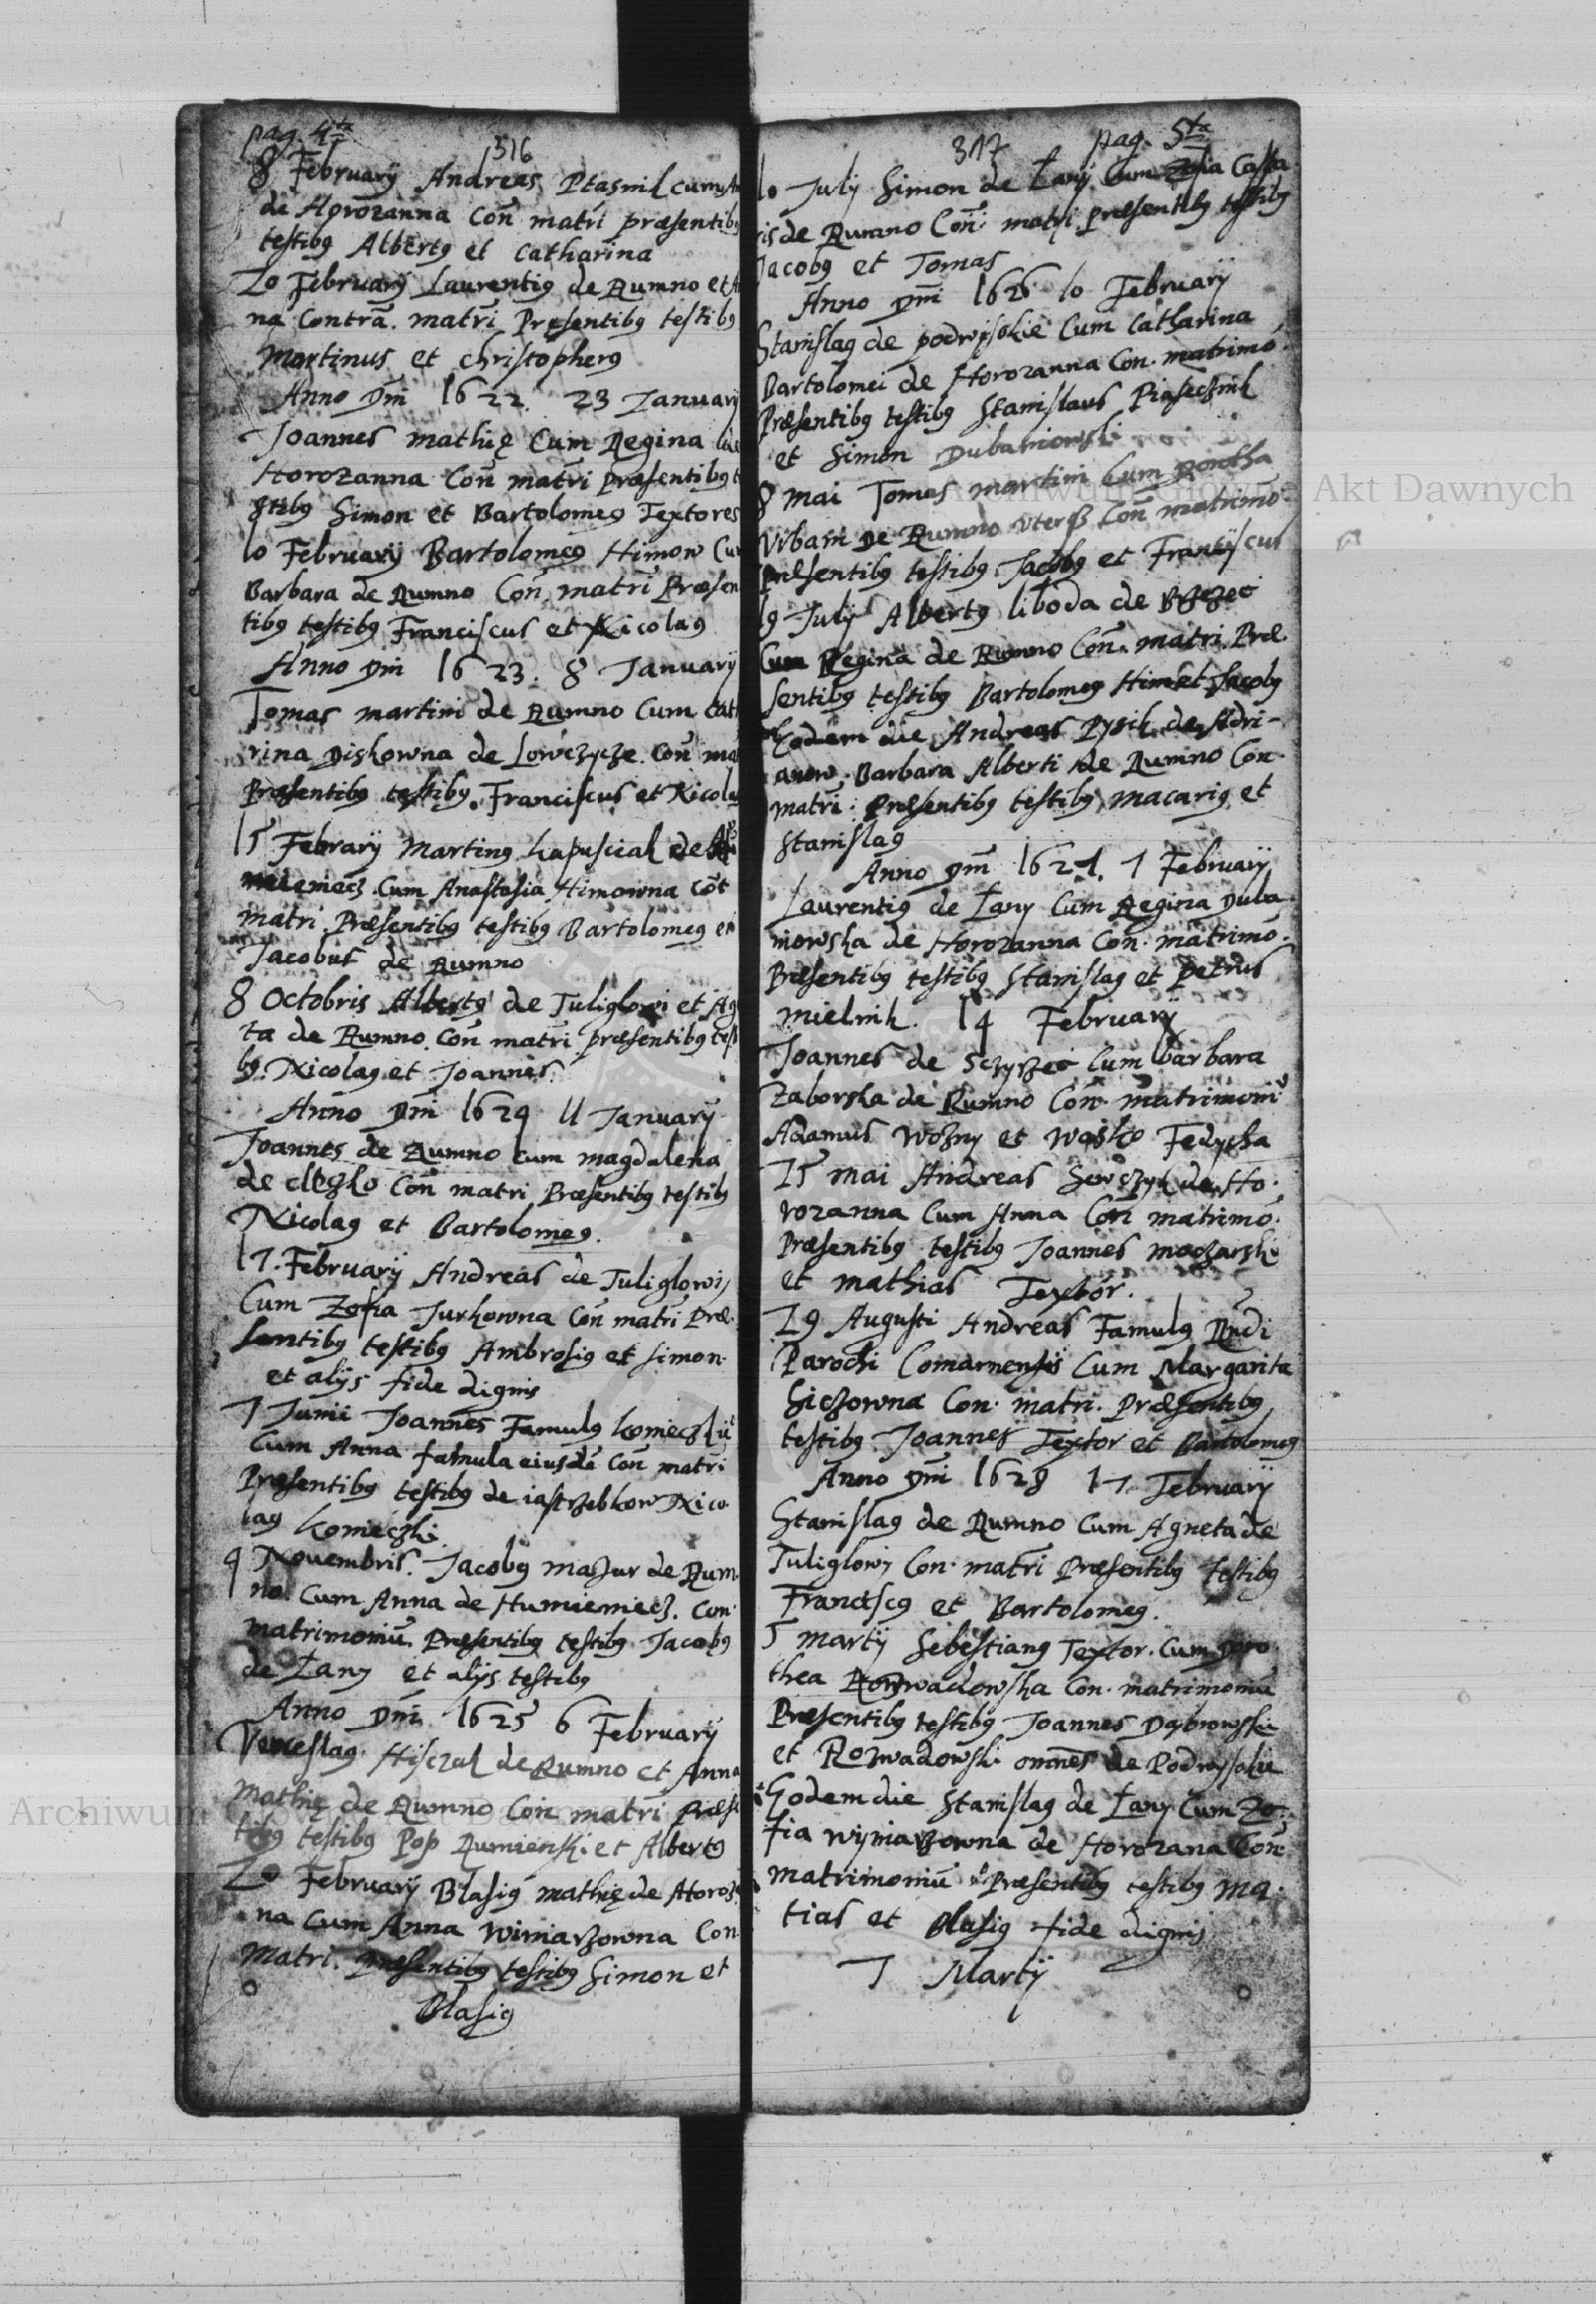 pag. 4ta
516
8 Februarij Andreas Ptasnik cum
de Horozanna Con matri præsentib9
testib9 Albert9 et Catharina
20 Februarij Laurenti9 de Rumno et
na Contra. matri Præsentib9 testib9
Martinus et Christopher9
Anno Dni 1622. 23 Januarij
Joannes mathię Cum Regina de
Horozanna Con matri præsentib9 t
stib9 Simon et Bartolome9 Textores
10 Februarij Bartolome9 Himow Cu
Barbara de Rumno Con matri Præsen
tib9 testib9 Franciscus et Nicola9
Anno Dni 1623. 8 Januarij
Tomas martini de Rumno Cum Cath
rina Diskowna de Lowczycze Con ma
Præsentib9 testib9. Franciscus et Nicola
15 Februarij Martin9 kapusciak de
mieniecz Cum Anastasia Himowna Cot
matri. Præsentib9 testib9 Bartolome9 et
Jacobus de Rumno
8 Octobris Albert9 de Tuliglowi et Ag
ta de Rumno Con matri præsentib9 test
b9. Nicola9 et Joannes.
Anno Dni 1624 11 Januarij
Joannes de Rumno Cum magdalena
de Con matri Præsentib9 testib9
Nicola9 et Bartolome9.
17. Februarij Andreas de Tuliglowij
Cum Zofia Jurkowna Con matri Præ
sentib9 testib9 Ambrosi9 et simon
et alijs fide dignis
7 Junii Joannes Famul9 komieczki
Cum Anna famula eiusde Con matri
Præsentib9 testib9 de iastrzebkow Nico
la9 komieczki
4 Novembris. Jacob9 mazur de Rum
no Cum Anna de Humieniecz. Con
matrimoniu. Præsentib9 testib9 Jacob9
de Łany et alijs testib9
Anno Dni 1625 6 Februarij
Venceslag Hisczak de Rumno et Anna
Mathię de Rumno Con matri Præse
tib9 testib9 Pop Rumienski et Albert9
20 Februarij Blasi9 mathię de Horoz
na Cum Anna Winiarzowna Con
Matri. Præsentib9 testib9 Simon et
Blasi9
317 pag. 5ta
10 Julij Simon de Łany Cum Zofia Caspa
ris de Rumno Con matri præsentib9 testib9
Jacob9 et Tomas
Anno Dni 1626 10 Februarij
Stanisla9 de podwisokie Cum Catharina
Bartolomei de Horozanna Con. matrimo
Præsentib9 testib9 Stanislaus Piasecznik
et Simon Dubaniowski
8 mai Tomas martini Cum
Vrbani De Rumno vterq Con matrimo
præsentib9 testib9 Jacob9 et Franciscus
19 Julij Albert9 liboda de
Cum Regina de Rumno Con. matri. Præ
sentib9 testib9 Bartolome9 Him et Jacob9
Eodem die Andreas Pysik de Adri-
anow. Barbara Alberti de Rumno Con
matri: Præsentib9 testib9 macari9 et
Stanisla9
Anno Dni 1627. 7 Februarij
Laurenti9 de Łany Cum Regina Duba
niowska de Horozanna Con. matrimo.
Præsentib9 testib9 Stanisla9 et petrus
mielnik. 14 Februarij
Joannes de Sczyrzec Cum barbara
Zaborska de Rumno Con matrimoni
Adamus Wozny et Wasko Fedycha
25 mai Andreas Sewczyk de Ho
rozanna Cum Anna Con matrimo.
Præsentib9 testib9 Joannes
et mathias Textor.
29 Augusti Andreas Famul9 Rndi
Parochi Comarnensis Cum Margarita
Siczowna Con. matri. Præsentib9
testib9 Joannes Textor et Bartolome9
Anno Dni 1628 17 Februarij
Stanisla9 de Rumno Cum Agneta de
Tuliglowi Con. matri Præsentib9 testib9
Francisc9 et Bartolome9.
5 martij Sebestian9 Textor. Cum Doro
thea Rozwadowska Con. matrimoniu
Præsentib9 testib9 Joannes Dąbrowski
et Rozwadowski omnes de Podwysokie
Eodem die Stanisla9 de Łany Cum Zo
fia winiarzowna de Horozana Con
matrimoniu Præsentib9 testib9 Ma
tias et Blasi9 fide dignis
7 Martij
Archiwum Główne Akt Dawnych
Archiwum Główne Akt Dawnych